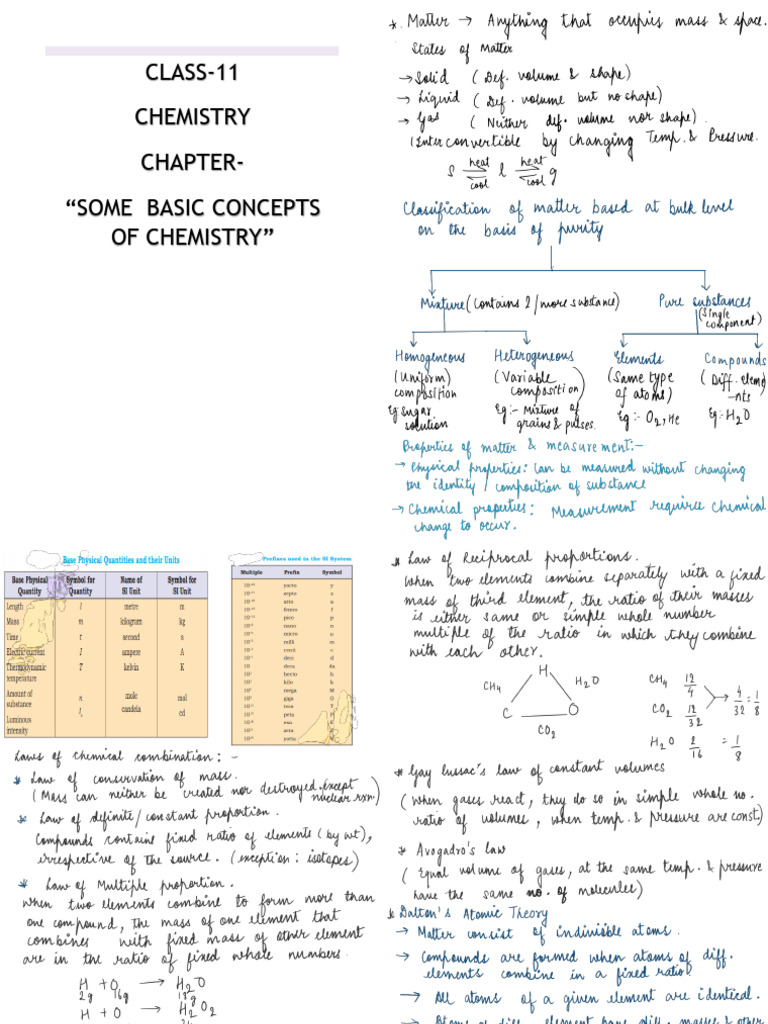 CLASS-11
CHEMISTRY
CHAPTER-
“SOME BASIC CONCEPTS
OF CHEMISTRY”
* Matter → Anything that occupies mass & space.
States of Matter
→ Solid (Def. volume & shape)
→ Liquid (Def. volume but no shape)
→ Gas (Neither def. volume nor shape).
(Interconvertible by changing Temp. & Pressure.
s heat/cool l heat/cool g
Classification of matter based at bulk level
on the basis of purity
Mixture (contains 2/more substance) Pure substances
(single
component)
Homogeneous Heterogeneous Elements Compounds
(Uniform) (Variable (Same type (Diff. eleme
composition composition) of atoms) -nts)
Eg Sugar Eg:- Mixture of Eg:- O2, He Eg:- H2O
solution grains & pulses.
Properties of matter & measurement:-
→ Physical properties: Can be measured without changing
the identity / composition of substance
→ Chemical properties: Measurement requires chemical
change to occur.
Base Physical Quantities and their Units
Base Physical Symbol for Name of Symbol for
Quantity Quantity SI Unit SI Unit
Length l metre m
Mass m kilogram kg
Time t second s
Electric current I ampere A
Thermodynamic T kelvin K
temperature
Amount of n mole mol
substance
Luminous Iv candela cd
intensity
Prefixes used in the SI System
Multiple Prefix Symbol
yocto y
zepto z
atto a
femto f
pico p
nano n
micro
milli m
centi c
deci d
deca da
hecto h
kilo k
mega M
giga G
tera T
peta P
exa E
zeta
yotta
Laws of chemical combination: -
* Law of conservation of mass.
(Mass can neither be created nor destroyed, except
nuclear rxn.)
* Law of definite/constant proportion.
Compounds contains fixed ratio of elements (by wt),
irrespective of the source. (exception: isotopes)
* Law of Multiple proportion.
When two elements combine to form more than
one compound, the mass of one element that
combines with fixed mass of other element
are in the ratio of fixed whole numbers.
H + O → H2O
2g 16g 18g
H + O → H2O2
* Law of Reciprocal proportions.
When two elements combine separately with a fixed
mass of third element, the ratio of their masses
is either same or simple whole number
multiple of the ratio in which they combine
with each other.
H
CH4 H2O
C O
CO2
CH4 12/4
CO2 12/32
→ 4/32 = 1/8
H2O 2/16 = 1/8
* Gay lussac's law of constant volumes
(When gases react, they do so in simple whole no.
ratio of volumes, when temp. & pressure are const.)
* Avogadro's law
(Equal volume of gases, at the same temp. & pressure
have the same no. of molecules)
* Dalton's Atomic Theory
→ Matter consist of indivisible atoms.
→ compounds are formed when atoms of diff.
elements combine in a fixed ratio
→ All atoms of a given element are identical.
→ Atoms of diff. element have diff. masses & other